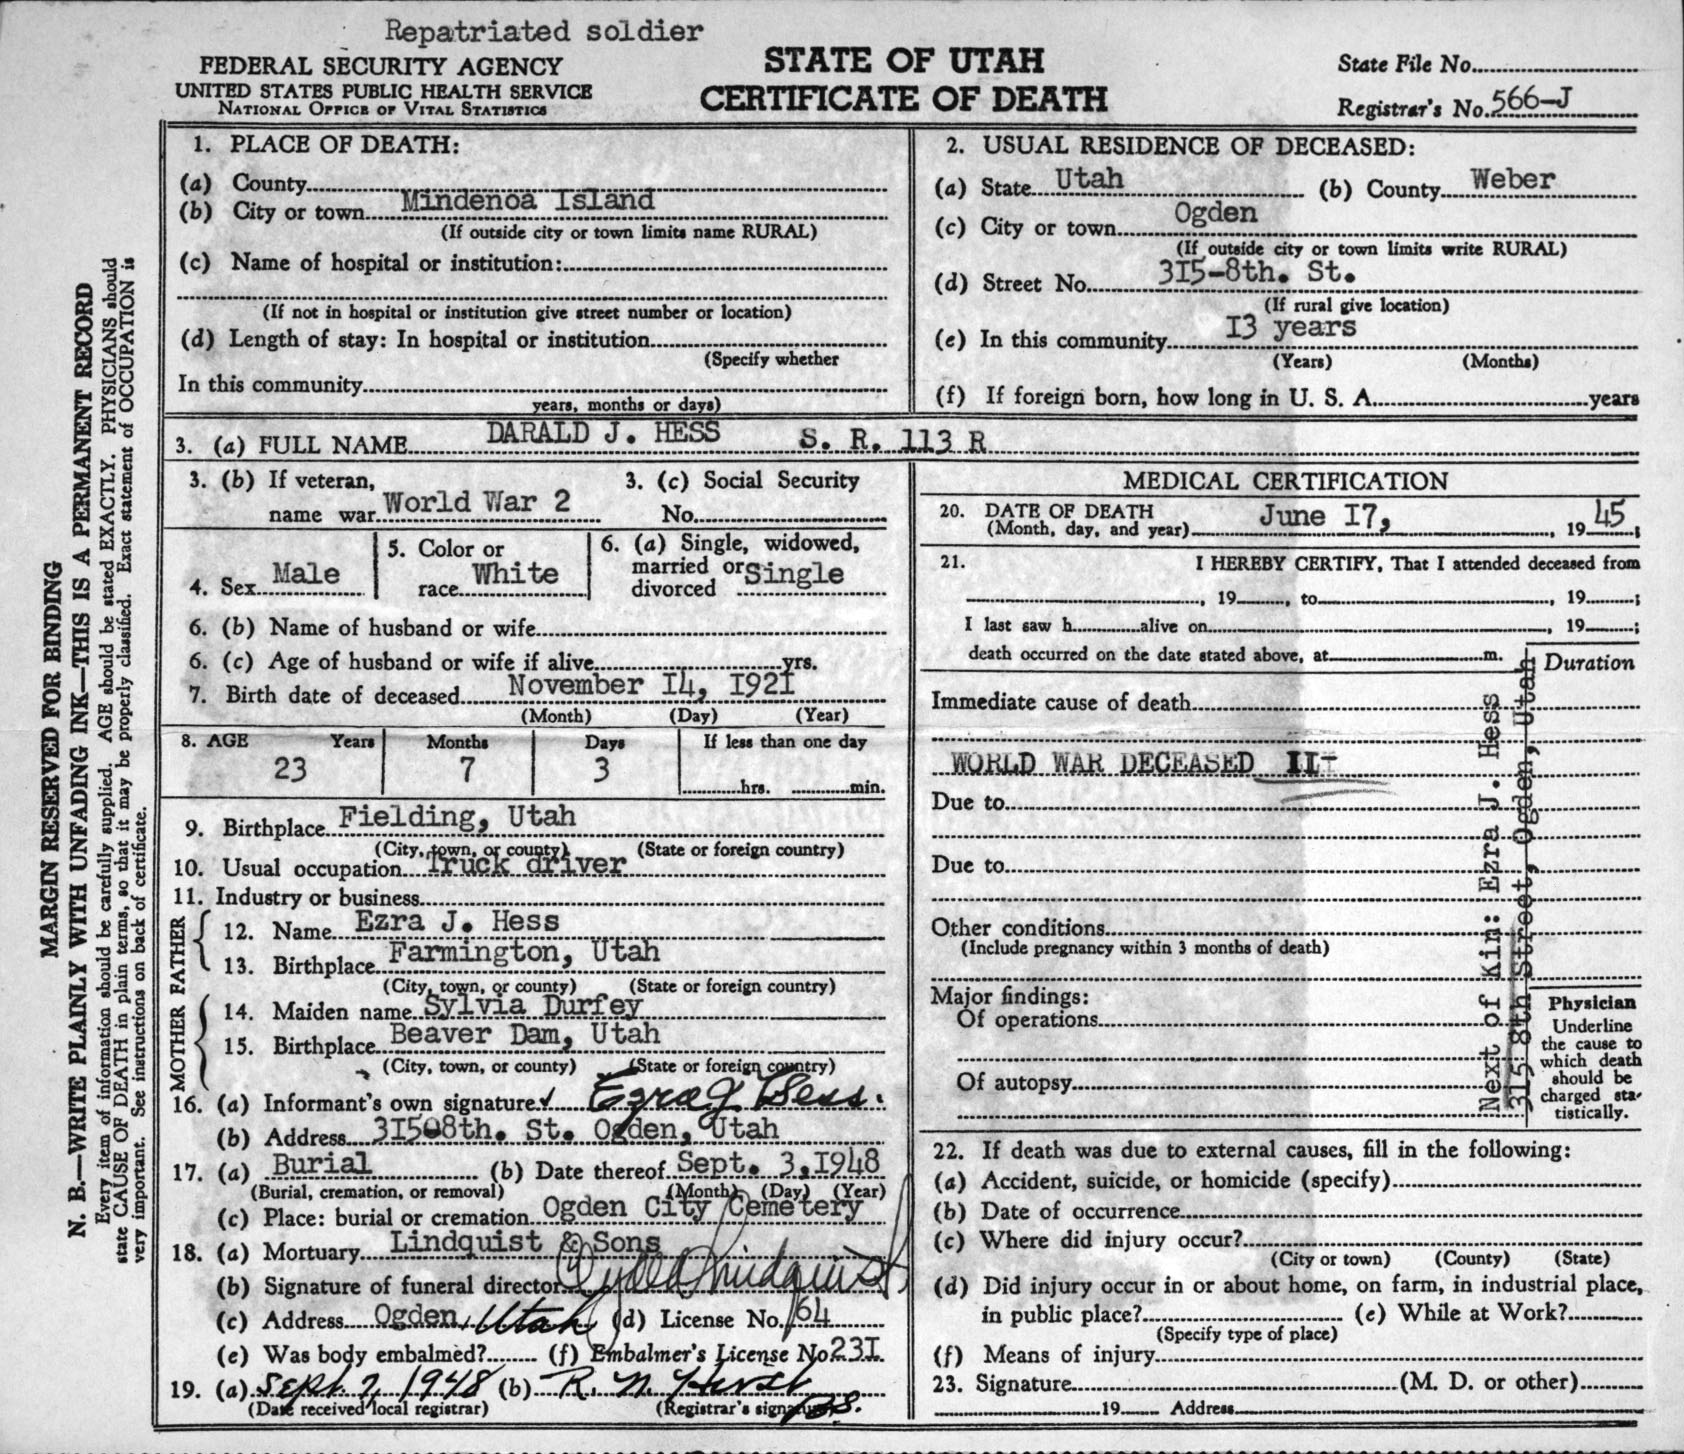 Repatriated soldier
FEDERAL SECURITY AGENCY
UNITED STATES PUBLIC HEALTH SERVICE
NATIONAL OFFICE OF VITAL STATISTICS
STATE OF UTAH
CERTIFICATE OF DEATH
State File No.
Registrar's No. 566-J
MARGIN RESERVED FOR BINDING
N. B.—WRITE PLAINLY WITH UNFADING INK—THIS IS A PERMANENT RECORD
Every item of information should be carefully supplied. AGE should be stated EXACTLY. PHYSICIANS should
state CAUSE OF DEATH in plain terms, so that it may be properly classified. Exact statement of OCCUPATION is
very important. See instructions on back of certificate.
1. PLACE OF DEATH:
(a) County
(b) City or town Mindenoa Island
(If outside city or town limits name RURAL)
(c) Name of hospital or institution:
(If not in hospital or institution give street number or location)
(d) Length of stay: In hospital or institution
(Specify whether
In this community
years, months or days)
2. USUAL RESIDENCE OF DECEASED:
(a) State Utah (b) County Weber
(c) City or town Ogden
(If outside city or town limits write RURAL)
(d) Street No. 3I5-8th. St.
(If rural give location)
(e) In this community I3 years
(Years) (Months)
(f) If foreign born, how long in U. S. A. years
3. (a) FULL NAME DARALD J. HESS S. R. 113 R
3. (b) If veteran,
name war World War 2
3. (c) Social Security
No.
4. Sex Male
5. Color or
race White
6. (a) Single, widowed,
married or
divorced Single
6. (b) Name of husband or wife
6. (c) Age of husband or wife if alive yrs.
7. Birth date of deceased November I4, I92I
(Month) (Day) (Year)
8. AGE Years Months Days If less than one day
23 7 3 hrs. min.
9. Birthplace Fielding, Utah
(City, town, or county) (State or foreign country)
10. Usual occupation Truck driver
11. Industry or business
FATHER
12. Name Ezra J. Hess
13. Birthplace Farmington, Utah
(City, town, or county) (State or foreign country)
MOTHER
14. Maiden name Sylvia Durfey
15. Birthplace Beaver Dam, Utah
(City, town, or county) (State or foreign country)
16. (a) Informant's own signature ✓ Ezra J Hess.
(b) Address 3I5-8th. St. Ogden, Utah
17. (a) Burial (b) Date thereof Sept. 3,I948
(Burial, cremation, or removal) (Month) (Day) (Year)
(c) Place: burial or cremation Ogden City Cemetery
18. (a) Mortuary Lindquist & Sons
(b) Signature of funeral director Lindquist
(c) Address Ogden, Utah (d) License No. 64
(e) Was body embalmed? (f) Embalmer's License No. 23I
19. (a) Sept. 7, 1948 (b) R. N. Hirst
(Date received local registrar) (Registrar's signature) BS.
MEDICAL CERTIFICATION
20. DATE OF DEATH
(Month, day, and year) June I7, , 19 45;
21. I HEREBY CERTIFY, That I attended deceased from
, 19 , to , 19 ;
I last saw h alive on , 19 ;
death occurred on the date stated above, at m.
Duration
Immediate cause of death
WORLD WAR DECEASED II
Due to
Due to
Other conditions
(Include pregnancy within 3 months of death)
Major findings:
Of operations
Of autopsy
Next of Kin: Ezra J. Hess
315 8th Street, Ogden, Utah
Physician
Underline
the cause to
which death
should be
charged sta-
tistically.
22. If death was due to external causes, fill in the following:
(a) Accident, suicide, or homicide (specify)
(b) Date of occurrence
(c) Where did injury occur?
(City or town) (County) (State)
(d) Did injury occur in or about home, on farm, in industrial place,
in public place? (e) While at Work?
(Specify type of place)
(f) Means of injury
23. Signature (M. D. or other)
19 Address